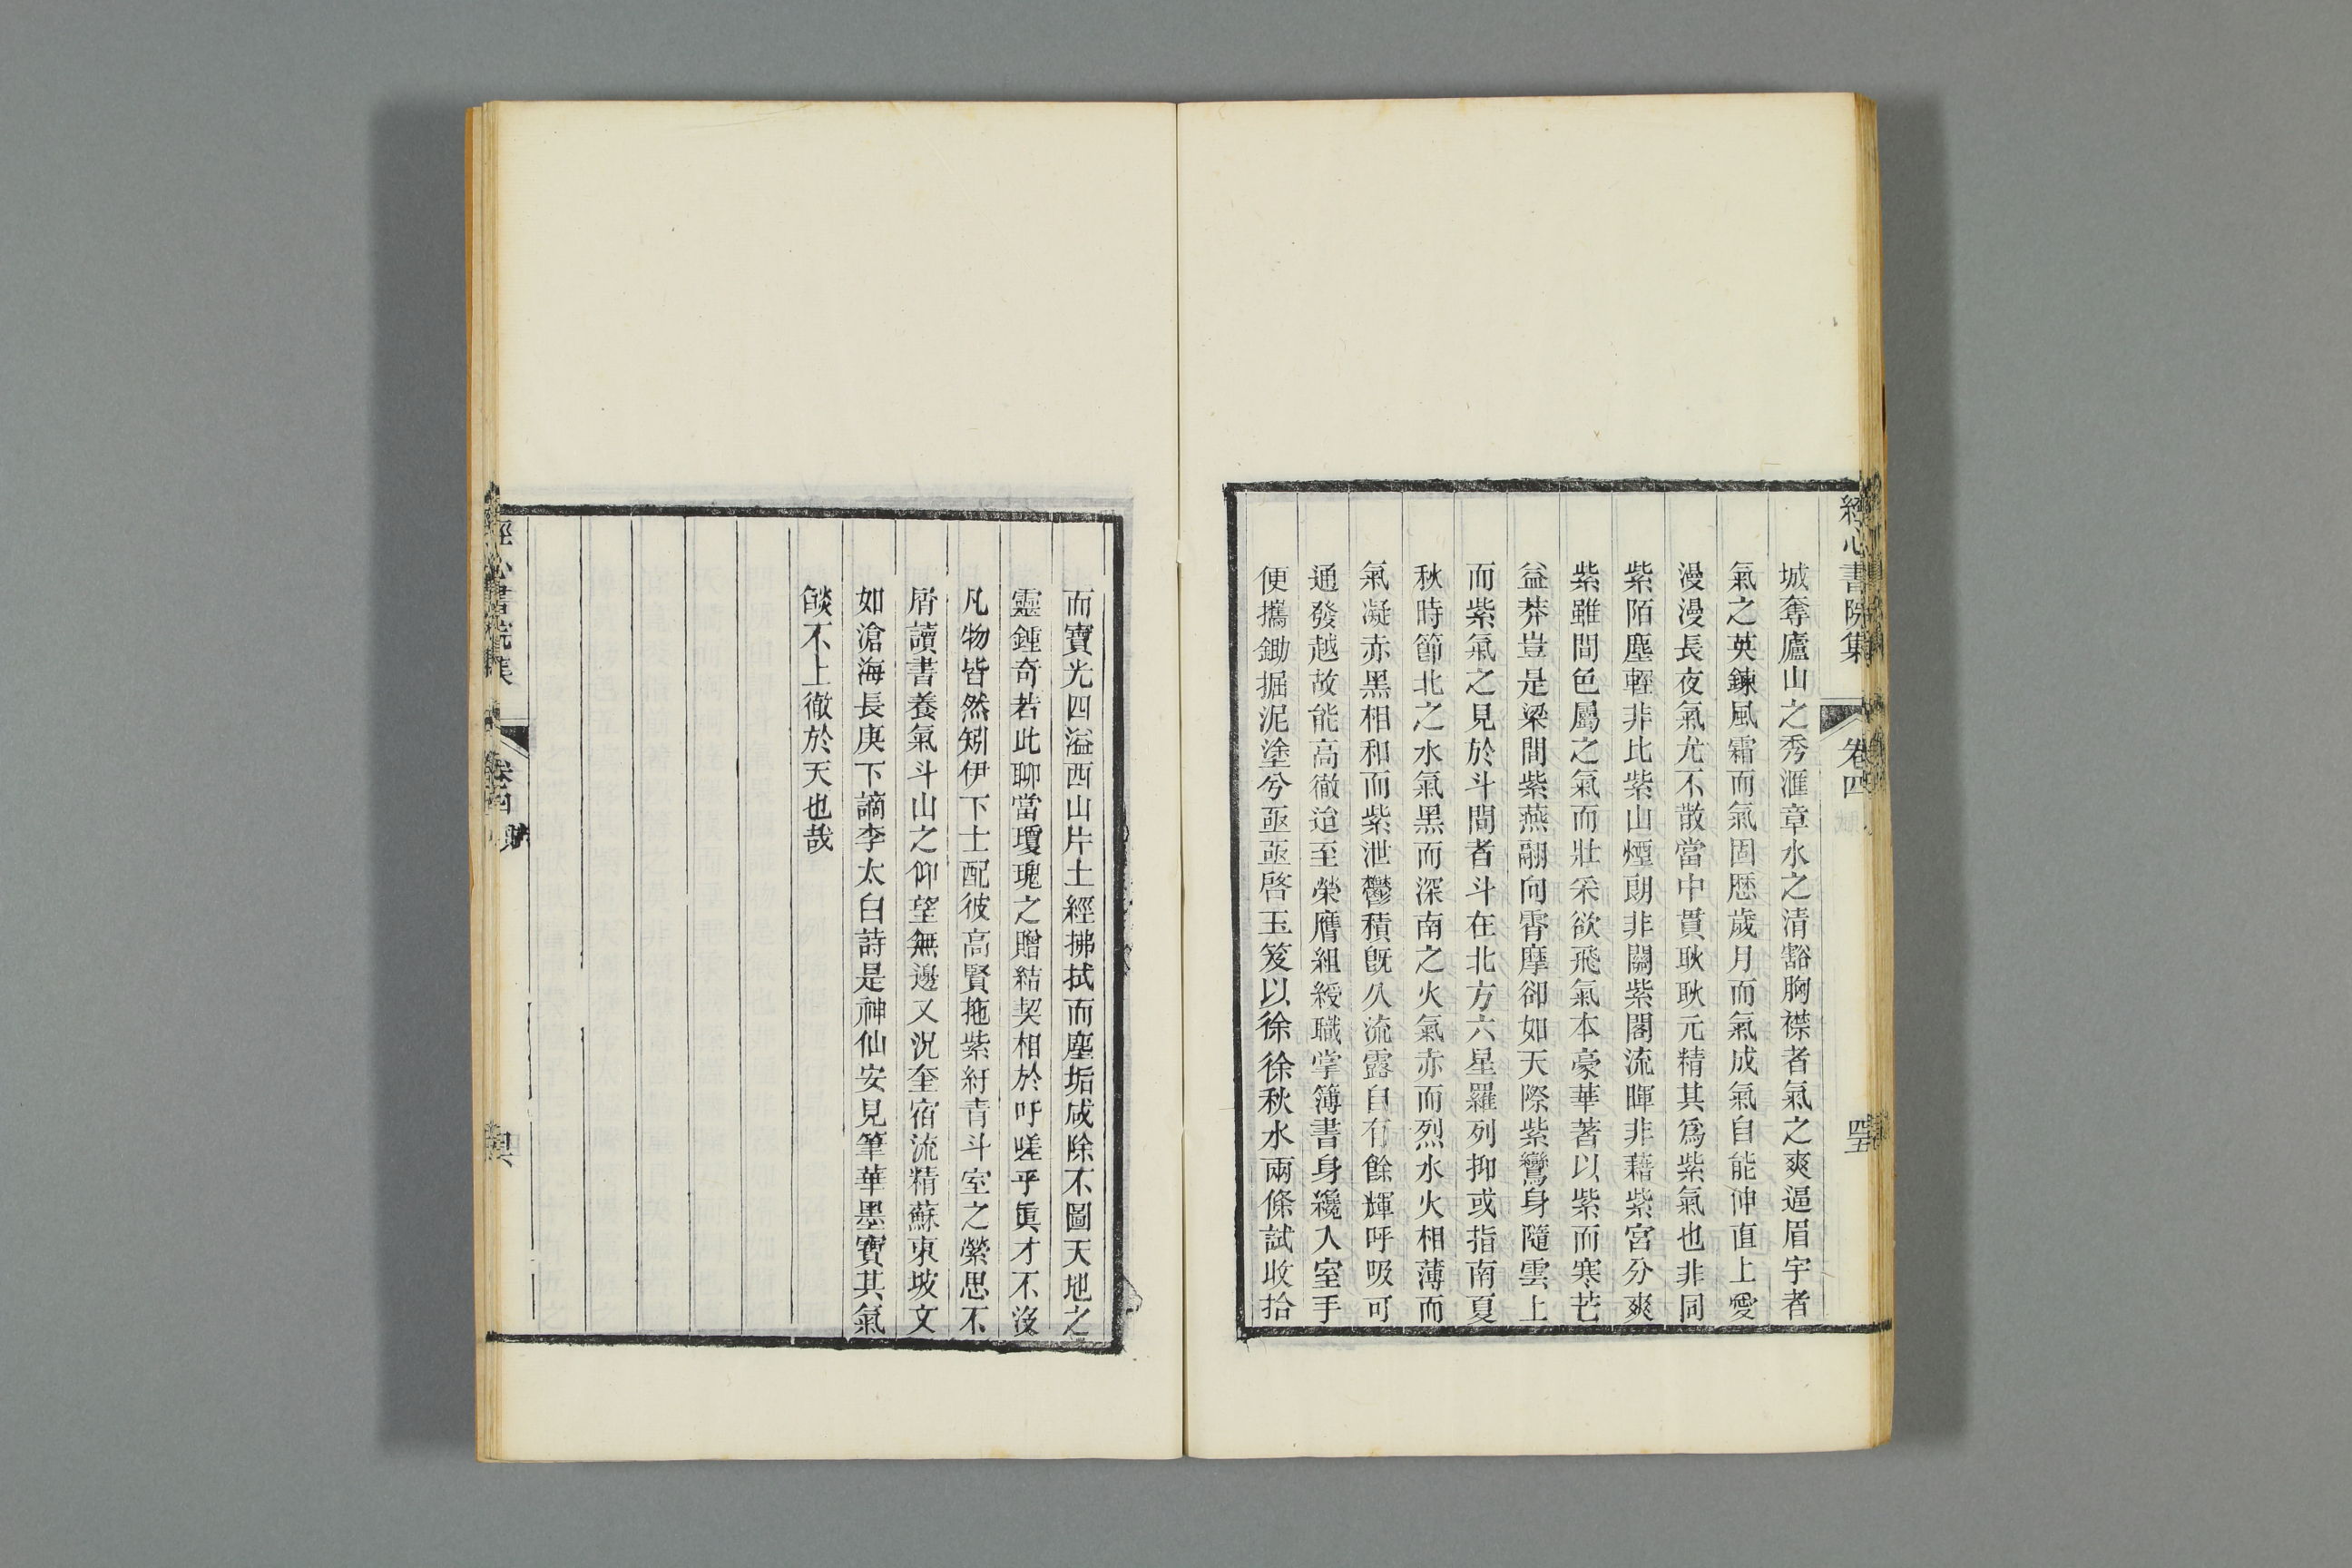 經心書院集 卷四 四五
城奪廬山之秀滙章水之清豁胸襟者氣之爽逼眉宇者
氣之英鍊風霜而氣固歷歲月而氣成氣自能伸直上霄
漫漫長夜氣尤不散當中貫耿耿元精其爲紫氣也非同
紫陌塵輕非比紫山煙朗非關紫閣流暉非藉紫宮分爽
紫雖間色屬之氣而壯采欲飛氣本豪華著以紫而寒芒
益莽豈是梁間紫燕翮向霄摩卻如天際紫鸞身隨雲上
而紫氣之見於斗間者斗在北方六星羅列抑或指南夏
秋時節北之水氣黑而深南之火氣赤而烈水火相薄而
氣凝赤黑相和而紫泄鬱積旣久流露自有餘輝呼吸可
通發越故能高徹迨至榮膺組綬職掌簿書身纔入室手
便攜鋤掘泥塗兮亟亟啓玉笈以徐徐秋水兩條試收拾
而寶光四溢西山片土經拂拭而塵垢咸除不圖天地之
靈鍾奇若此聊當瓊瑰之贈結契相於吁嗟乎眞才不沒
凡物皆然矧伊下士配彼高賢拖紫紆青斗室之縈思不
屑讀書養氣斗山之仰望無邊又況奎宿流精蘇東坡文
如滄海長庚下謫李太白詩是神仙安見筆華墨寶其氣
燄不上徹於天也哉
經心書院集 卷四 賦